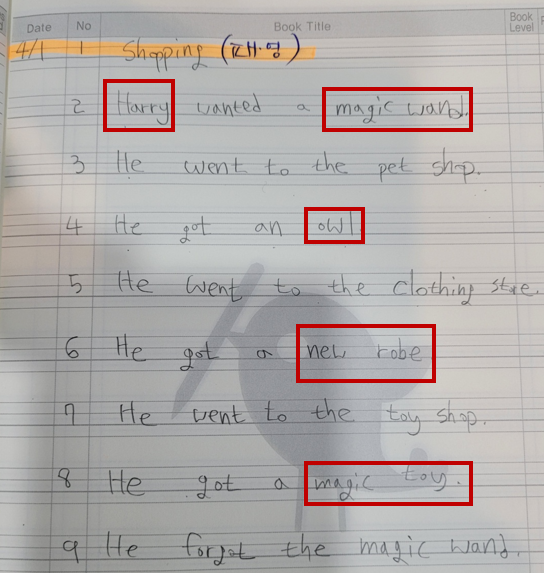 Date No Book Title Book Level
4/1 1 Shopping (교재·영)
2 Harry wanted a magic wand.
3 He went to the pet shop.
4 He got an owl.
5 He went to the clothing store.
6 He got a new robe
7 He went to the toy shop.
8 He got a magic toy.
9 He forgot the magic wand.